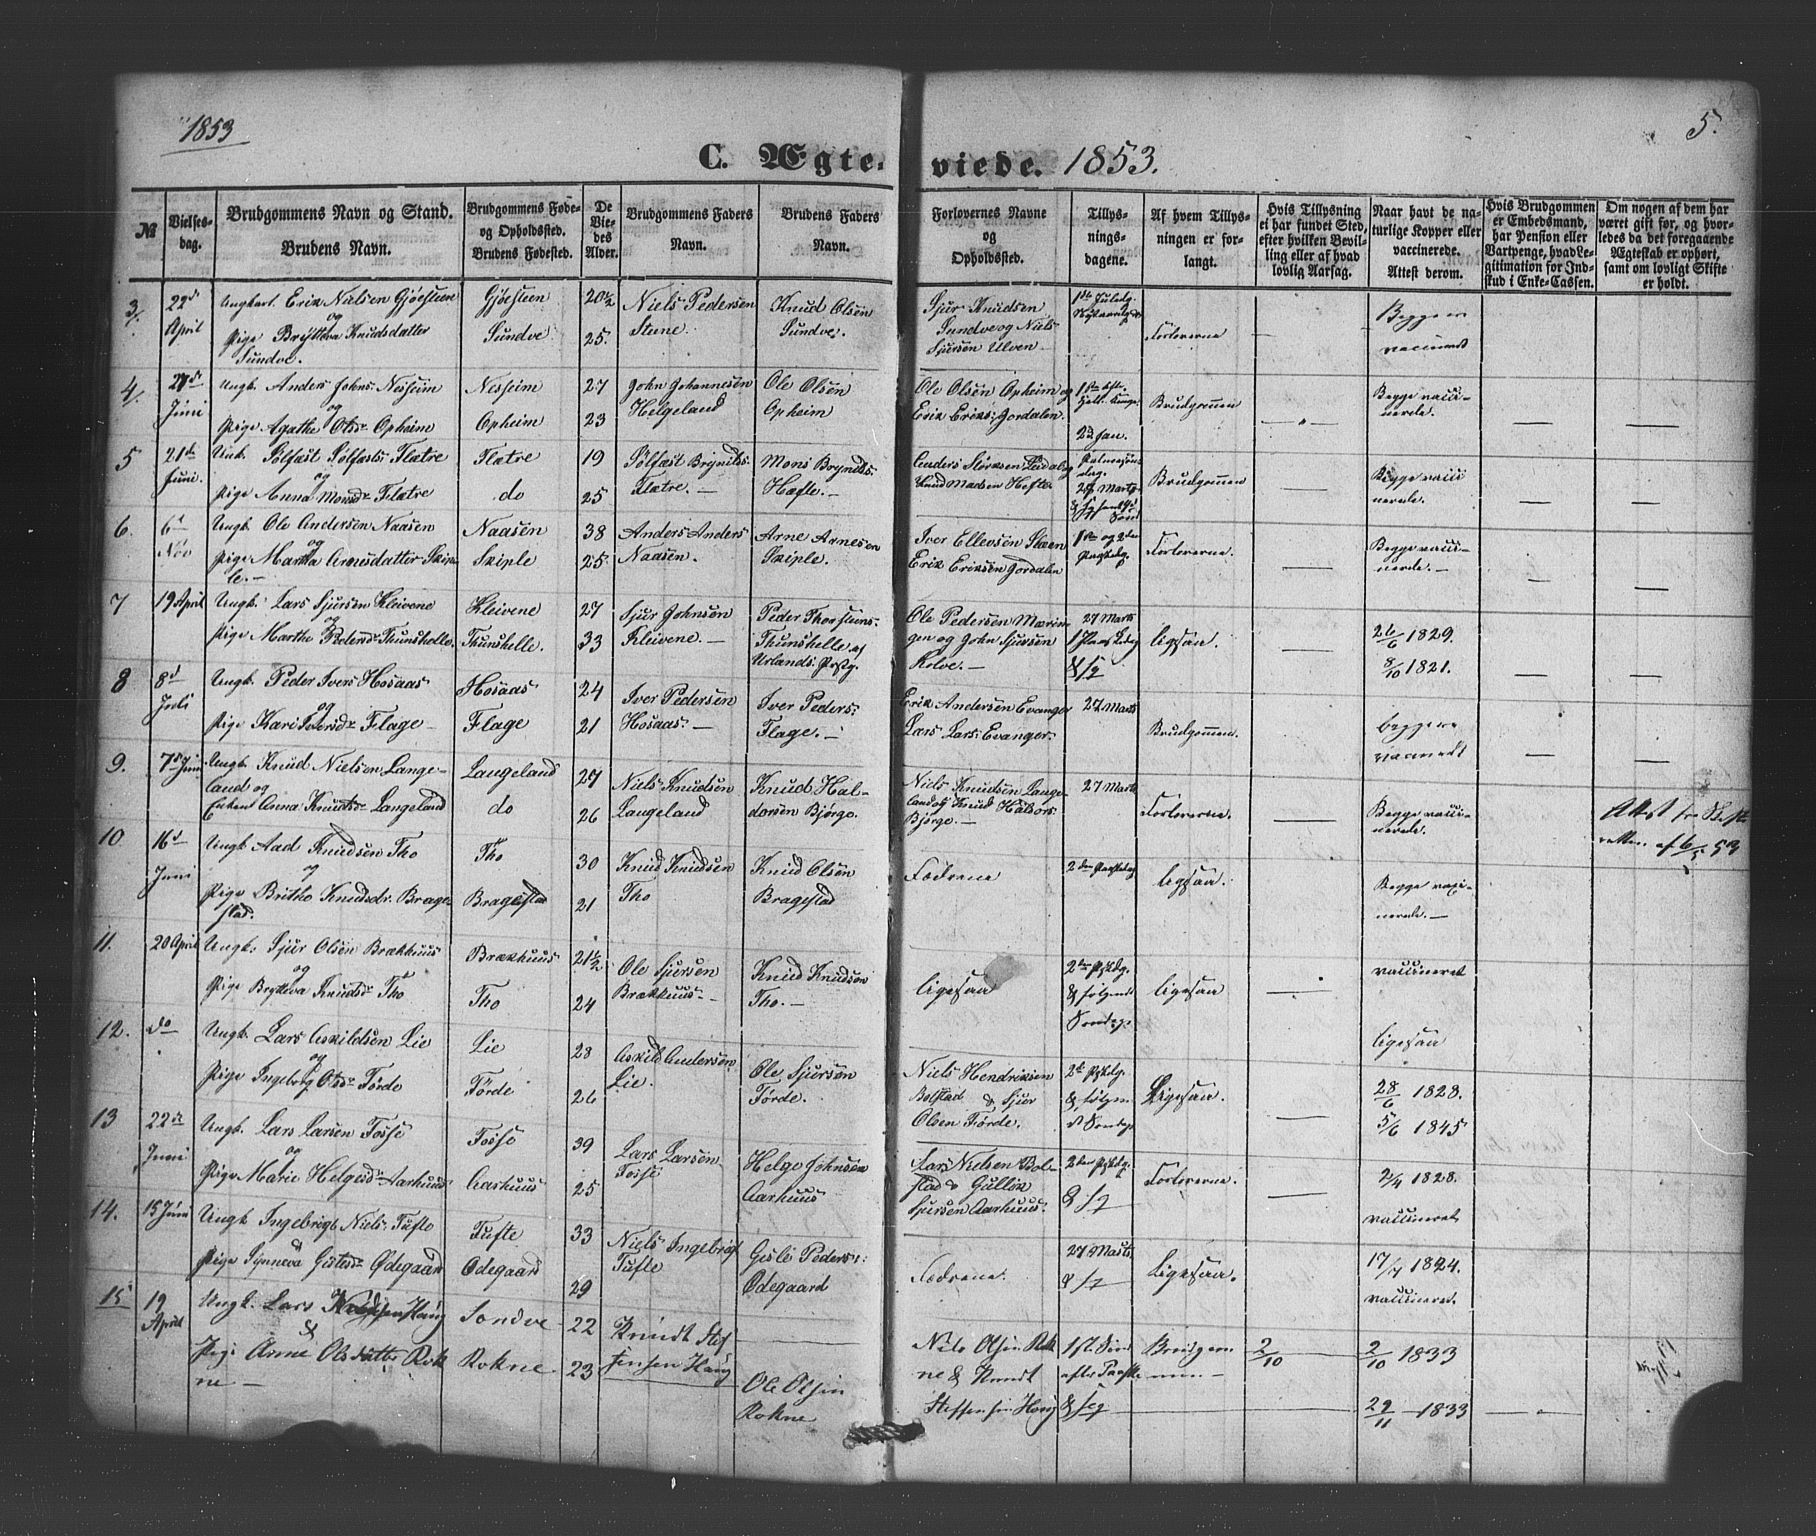 1853
5.
C. Ægteviede. 1853.
№
Vielsesdag.
Brudgommens Navn og Stand.
Brudens Navn.
Brudgommens Føde- og Opholdssted.
Brudens Fødested.
De Viedes Alder.
Brudgommens Faders Navn.
Brudens Faders Navn.
Forlovernes Navne og Opholdssted.
Tillysningsdagene.
Af hvem Tillysningen er forlangt.
Hvis Tillysning ei har fundet Sted, efter hvilken Bevilling eller af hvad lovlig Aarsag.
Naar havt de naturlige Kopper eller vaccinerede. Attest derom.
Hvis Brudgommen er Embedsmand, har Pension eller Vartpenge, hvad Legitimation for Indskud i Enke-Cassen.
Om nogen af dem har været gift før, og hvorledes da det foregaaende Ægteskab er ophørt, samt om lovligt Skifte er holdt.
3/. 22de April
Ungkarl. Erik Nielsen Gjøesteen
og
Pige Bryteva Knudsdatter Sundve.
Gjøesteen
Sundve.
20½
25.
Niels Pedersen Stene
Knud Olsen Sundve.
Sjur Knudsen Sundve og Niels Sjursen Ulven
Forloverne
Begge ere vaccineredt
4/. Juni
Ungk. Anders Johns. Nesheim
og
Pige Agathe Olsdr Opheim
Nesheim
Opheim
27
23
John Johannesen Helgeland
Ole Olsen Opheim
Ole Olsen Opheim og Erik Eriks. Gordalen
23 Jan.
Brudgommen
Begge vaccinerede.
5 21de Juni.
Ungk. Sølfæst Sølfæsts. Flætre
og
Pige Anna Monsdr Flætre
Flætre
do
19
25
Sølfæst Brynilds. Flætre.
Mons Brynilds. Hæfte.
Knud Madsen Hefte
Brudgommen
Begge vaccinerede.
6. 6d Nov
Ungk. Ole Andersen Naasen
og
Pige Martha Arnesdatter Skiple.
Naasen
Skiple
38
25
Anders Anders. Naasen.
Arne Arnesen Skiple.
Iver Ellevsen Skeen
Erik Eriksen Gordalen
1ste og 2den Paaskedg
Forloverne.
Begge vaccinerede.
7 19 April
Ungk. Lars Sjursen Kleivene
og
Pige Marthe Pedersdr Thunshelle.
Kleivene
Thunshelle.
27
33
Sjur Johnsen Kleivene.
Peder Thorsteins. Thunshelle af Urlands Præstg.
Ole Pedersen Mæringen og John Sjursen Kolve.
27 Marts
ligesaa.
26/6 1829.
8/10 1821.
8 8d Juli
Ungk. Peder Ivers. Hosaas
og
Pige Kari Iversdr Flage
Hosaas
Flage
24
21
Iver Pedersen Hosaas.
Iver Peders. Flage.
Erik Andersen Evanger
Lars Lars. Evanger.
27 Marts
Brudgommen.
begge ere vaccineredt
9. 7de Juni
Ungk. Knud Nielsen Langeland og
Enken Anna Knutsdr Langeland
Langeland
do
27
26
Niels Knudsen Langeland
Knud Haldorsen Bjørgo.
Niels Knudsen Langeland og Knud Haldors. Bjørgo.
27 Marts
Forloverne.
Begge vaccinerede.
Attest fra Skifteretten af 6/5 53
10 16d Juni
Ungk. Aad Knudsen Tho
og
Pige Britha Knudsdr. Bragestad.
Tho
Bragestad
30
21
Knud Knudsen Tho
Knud Olsen Bragestad
Fædrene
2den Paaskedag
ligesaa.
Begge vaccinerede.
11. 20 April
Ungk. Sjur Olsen Brækhuus
og
Pige Bryteva Knutsdr Tho
Brækhuus
Tho
21½
24
Ole Sjursen Brækhuus
Knud Knudsen Tho.
ligesaa
2den Pskdg. & følgend Søndage
ligesaa
vaccineret
ligesaa
12. do
Ungk. Lars Askildsen Lie
og
Pige Ingeborg Olsdr Førde
Lie
Førde
28
26
Askild Andersen Lie.
Ole Sjursen Førde.
Niels Hendriksen Bolstad & Sjur Olsen Førde.
2d Pskdg. & følgend Søndage
Ligesaa.
28/6 1828.
5/6 1845
13 22de Juni
Ungk. Lars Larsen Fosse
og
Pige Marie Helgesdr Aarhuus
Fosse
Aarhuus
39
25
Lars Larsen Fosse
Helge Johnsen Aarhuus
Lars Nielsen Bolstad & Gullik Sjursen Aarhuus.
2den Pskdg.
Forloverne.
2/4 1828.
vaccineret
14. 15 Juni
Ungk. Ingebrigt Niels. Tufte
Pige Synneva Gislesdr Ødegaard
Tufte
Ødegaard
33
29
Niels Ingebrigt. Tufte
Gisle Peders. Ødegaard
Fædrene.
27 Marts
Ligesaa.
17/7 1824.
vaccineret.
15 19 April
Ungk. Lars Knudsen Haug
&
Pige Anne Olsdatter Rokne
Sondve
Rokne
22
23
Knudt Steffensen Haug
Ole Olsen Rokne
Nils Olsen Rokne & Knudt Steffensen Haug
1st. Sønd. efter Paaske & seg
Brudgommen.
2/10
2/10 1833
29/11 1833